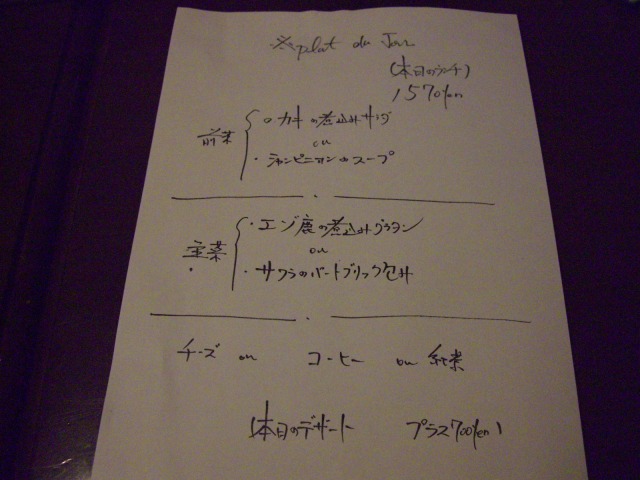 ※ plat du Jour
(本日のランチ)
1570yen
前菜
・カキの煮込みサラダ
ou
・シャンピニオンのスープ
主菜
・エゾ鹿の煮込みグラタン
ou
・サワラのパートブリック包み
チーズ ou コーヒー ou 紅茶
(本日のデザート プラス700yen)